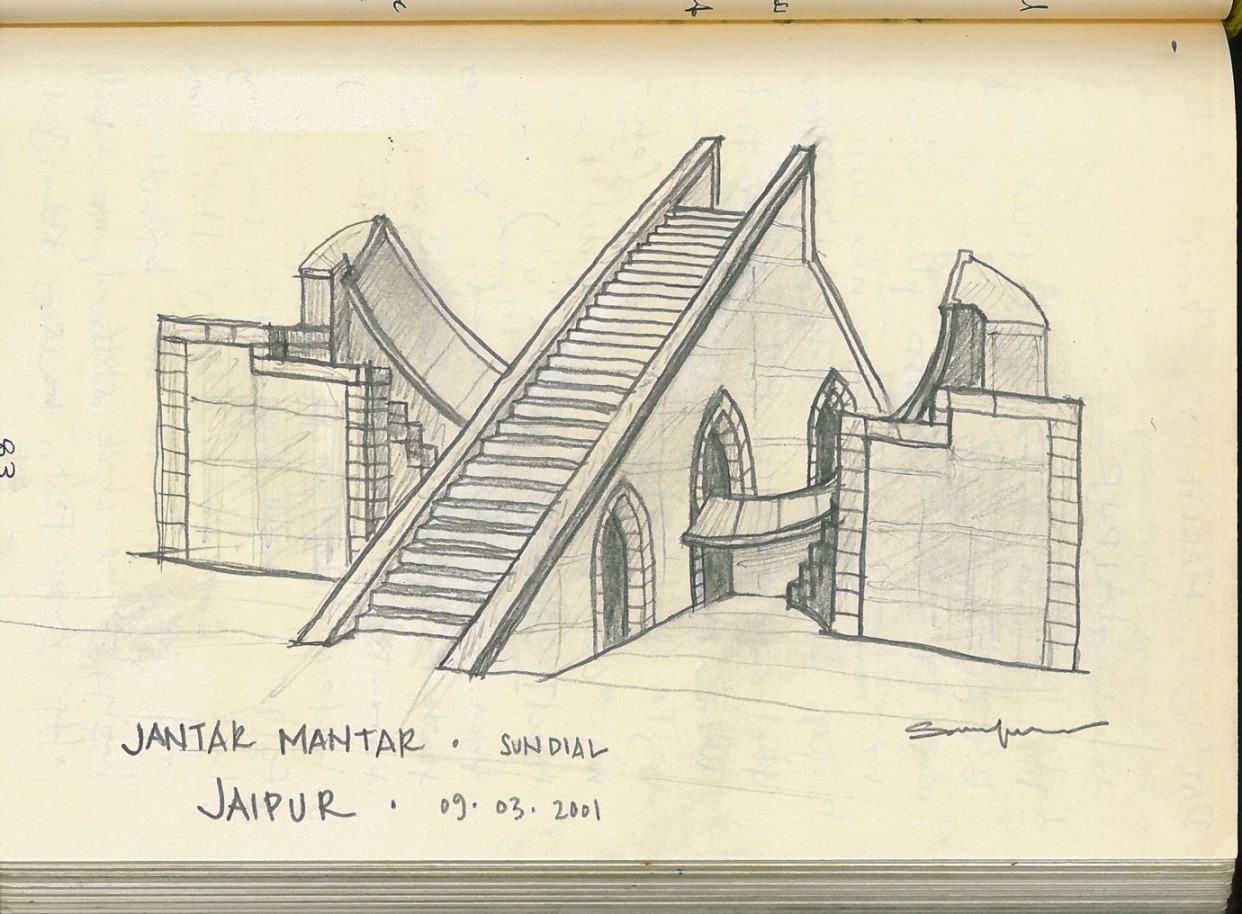 JANTAR MANTAR · SUNDIAL
JAIPUR · 09·03·2001
83